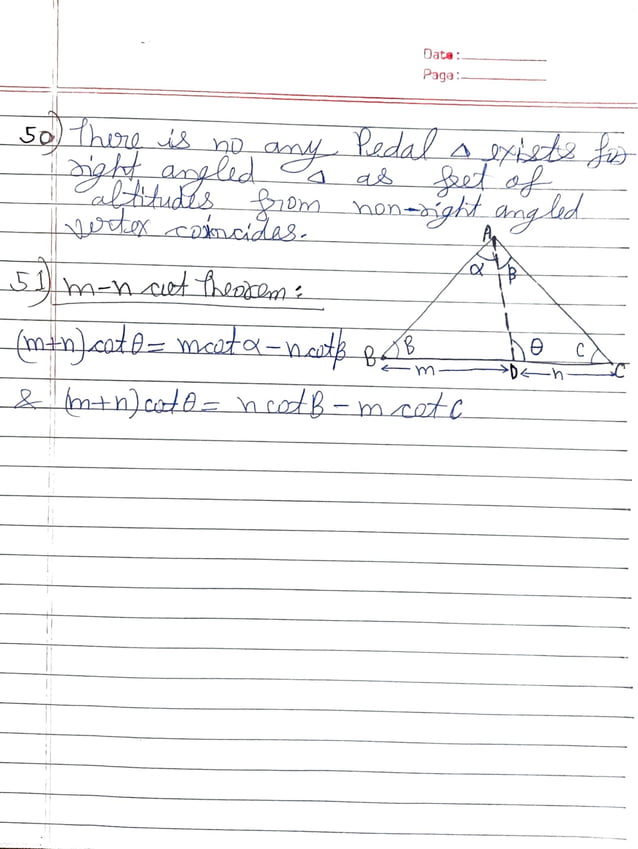 Date:
Page:
50) There is no any Pedal △ exists for
right angled △ as feet of
altitudes from non-right angled
vertex coincides.
A
α β
51) m-n cot Theorem:
(m+n) cot θ = m cot α - n cot β
B B θ C C
m D n
& (m+n) cot θ = n cot B - m cot C